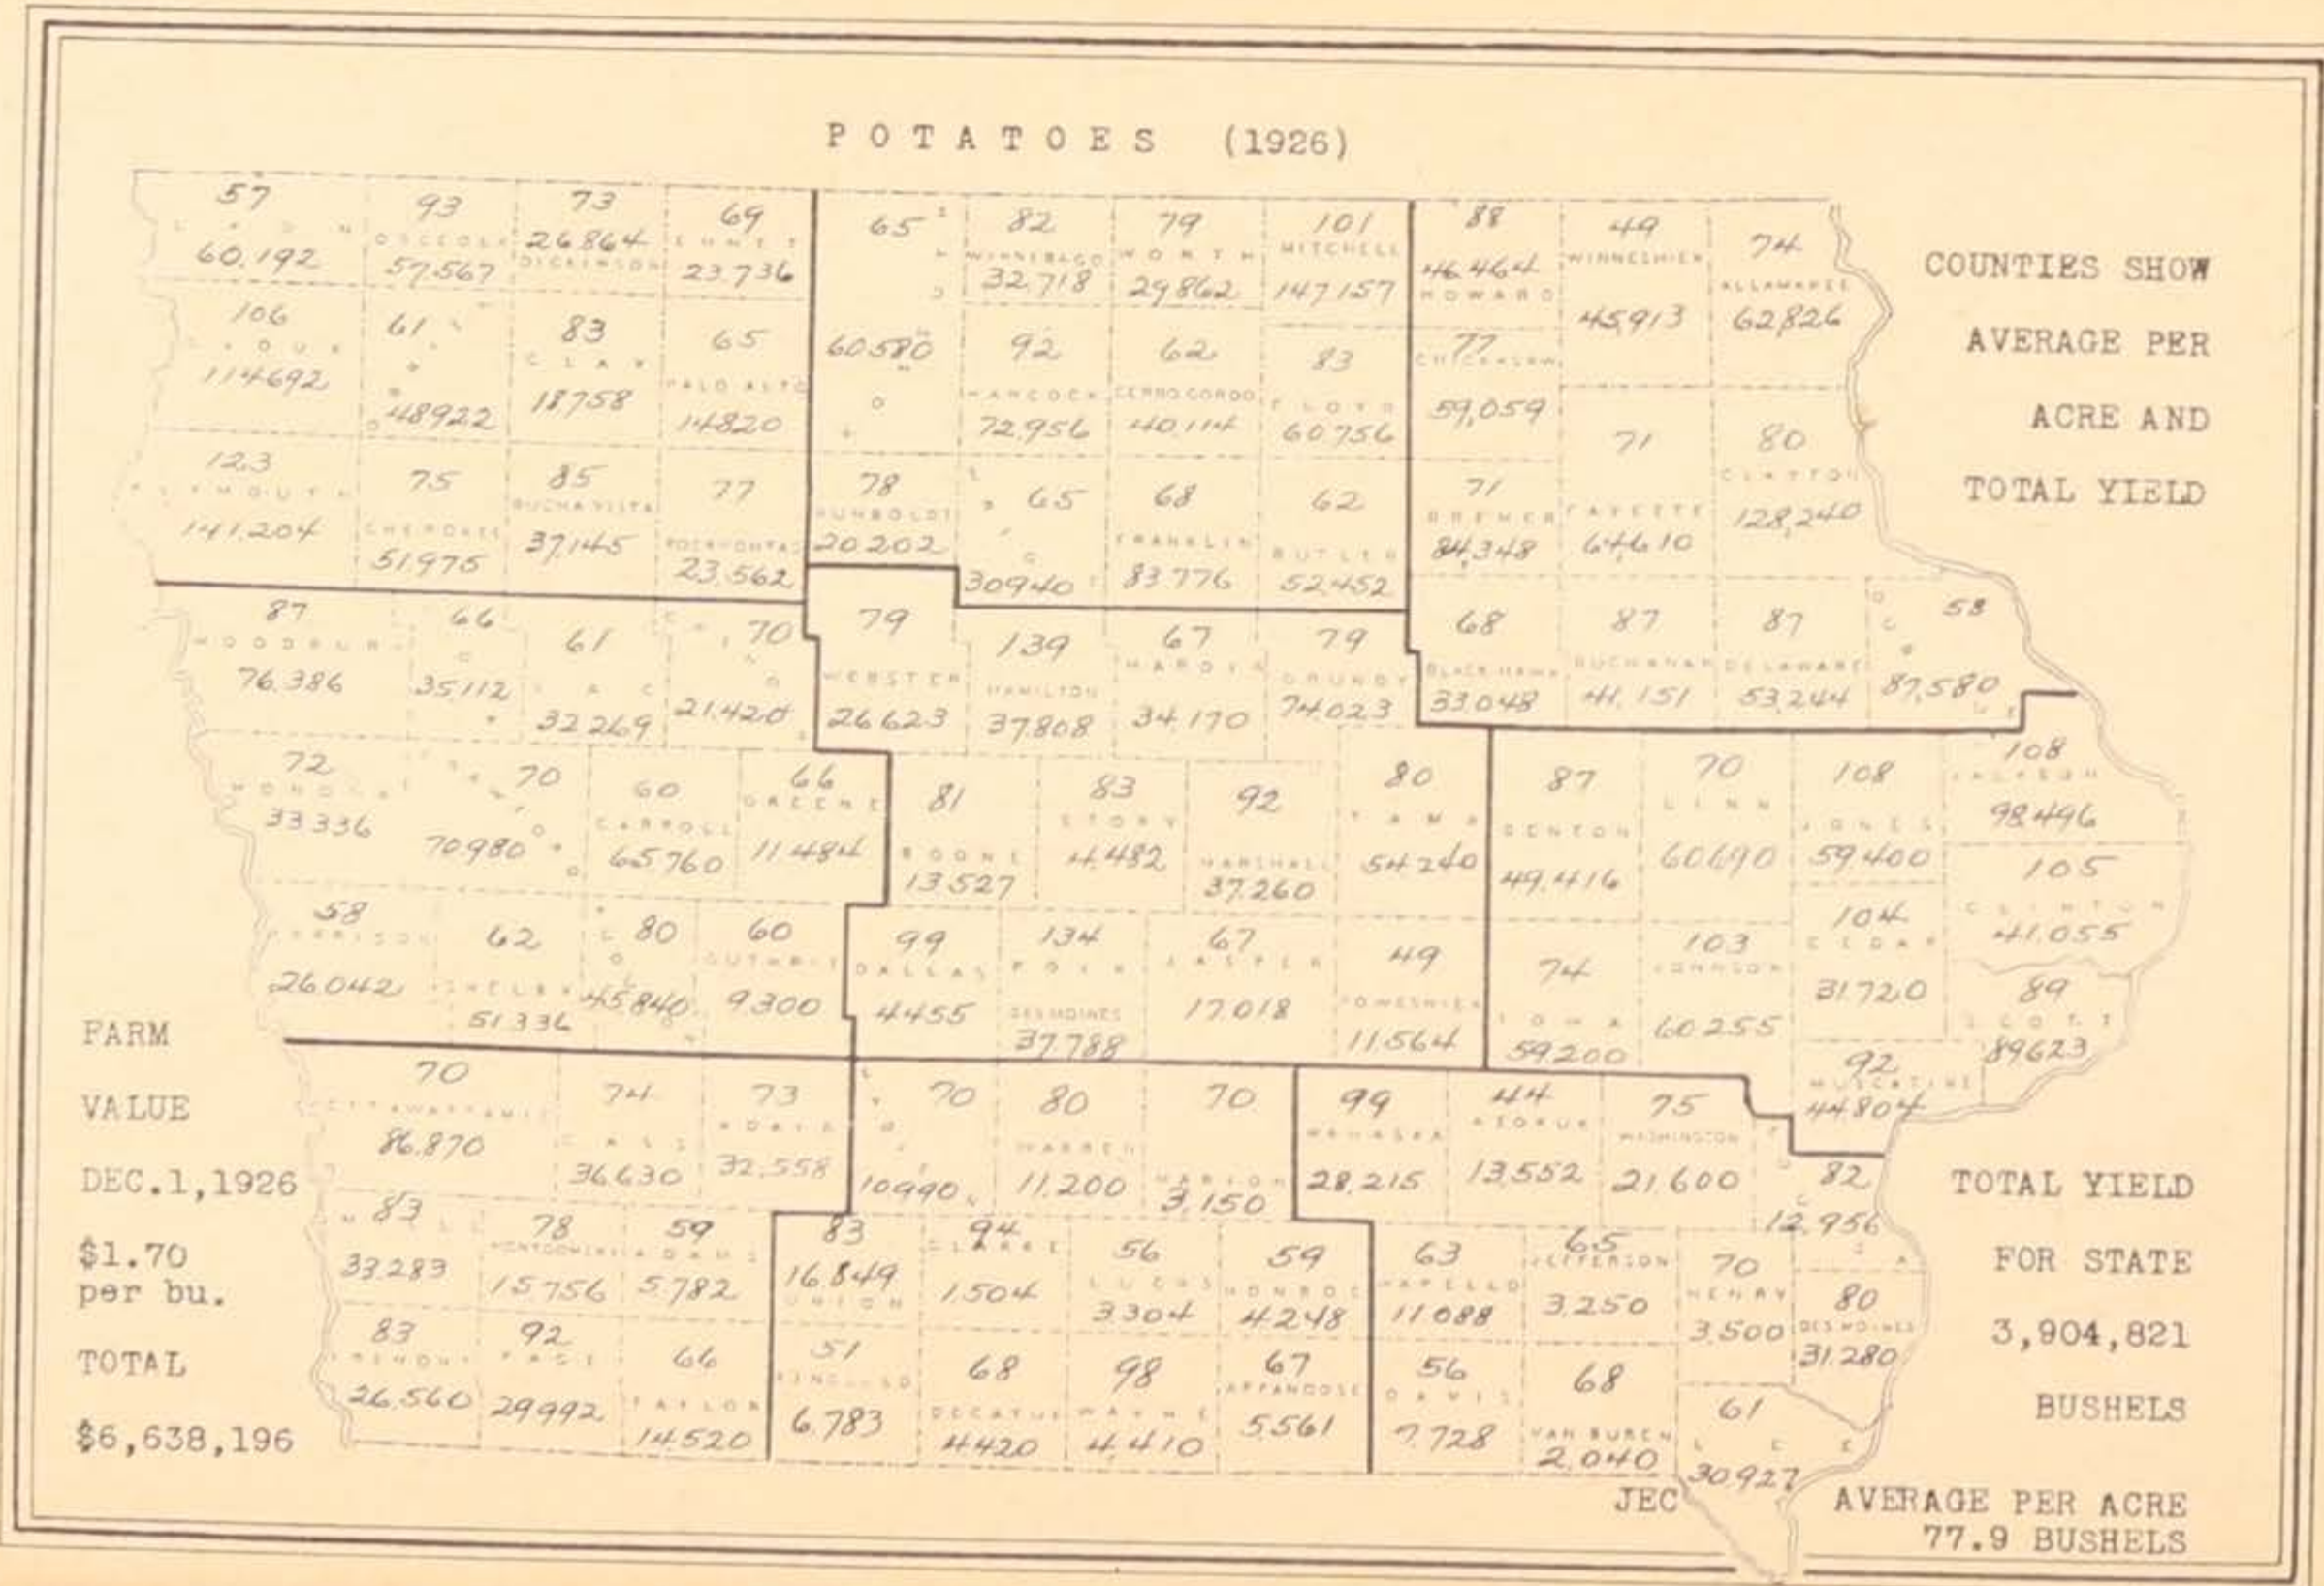 POTATOES (1926)
COUNTIES SHOW
AVERAGE PER
ACRE AND
TOTAL YIELD
57
60,192
93
OSCEOLA
57,567
73
26864
DICKINSON
69
EMMET
23,736
65
60580
82
WINNEBAGO
32,718
79
WORTH
29862
101
MITCHELL
147157
88
46,464
HOWARD
49
WINNESHIEK
45,913
74
ALLAMAKEE
62,826
106
SIOUX
114692
61
48922
83
CLAY
18758
65
PALO ALTO
14820
92
HANCOCK
72,956
62
CERRO GORDO
40,114
83
FLOYD
60756
77
CHICKASAW
59,059
123
PLYMOUTH
141,204
75
CHEROKEE
51975
85
BUENA VISTA
37,145
77
POCAHONTAS
23,562
78
HUMBOLDT
20202
65
30940
68
FRANKLIN
83776
62
BUTLER
52452
71
BREMER
84,348
71
FAYETTE
64,610
80
CLAYTON
128,240
87
WOODBURY
76,386
66
35,112
61
SAC
32269
70
21,420
79
WEBSTER
26623
139
HAMILTON
37,808
67
HARDIN
34,170
79
GRUNDY
74,023
68
BLACK HAWK
33,048
87
BUCHANAN
41,151
87
DELAWARE
53,244
58
87,580
72
MONONA
33336
70
70980
60
CARROLL
65760
66
GREENE
11484
81
BOONE
13527
83
STORY
4,482
92
MARSHALL
37,260
80
TAMA
54240
87
BENTON
49,416
70
LINN
60690
108
JONES
59400
108
JACKSON
98,496
105
CLINTON
41,055
58
HARRISON
26042
62
SHELBY
51336
80
45840
60
GUTHRIE
9300
99
DALLAS
4455
134
POLK
DES MOINES
37,788
67
JASPER
17018
49
POWESHIEK
11,564
74
IOWA
59200
103
JOHNSON
60255
104
CEDAR
31720
89
SCOTT
89623
92
MUSCATINE
44804
FARM
VALUE
DEC.1,1926
$1.70
per bu.
TOTAL
$6,638,196
70
POTTAWATTAMIE
86,870
74
CASS
36630
73
ADAIR
32,558
70
10990
80
WARREN
11,200
70
MARION
3,150
99
MAHASKA
28,215
44
KEOKUK
13,552
75
WASHINGTON
21,600
82
12,956
83
33,283
78
MONTGOMERY
15756
59
ADAMS
5,782
83
16,849
UNION
94
CLARKE
1,504
56
LUCAS
3304
59
MONROE
4248
63
WAPELLO
11088
65
JEFFERSON
3,250
70
HENRY
3,500
80
DES MOINES
31,280
83
FREMONT
26,560
92
PAGE
29992
66
TAYLOR
14520
51
RINGGOLD
6,783
68
DECATUR
4420
98
WAYNE
4,410
67
APPANOOSE
5,561
56
DAVIS
7,728
68
VAN BUREN
2,040
61
LEE
30,927
TOTAL YIELD
FOR STATE
3,904,821
BUSHELS
JEC
AVERAGE PER ACRE
77.9 BUSHELS